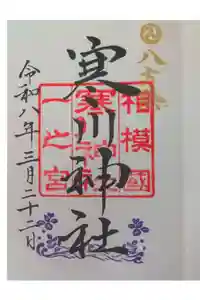 八方除
相模國
一之宮
寒川神社
令和八年三月二十二日